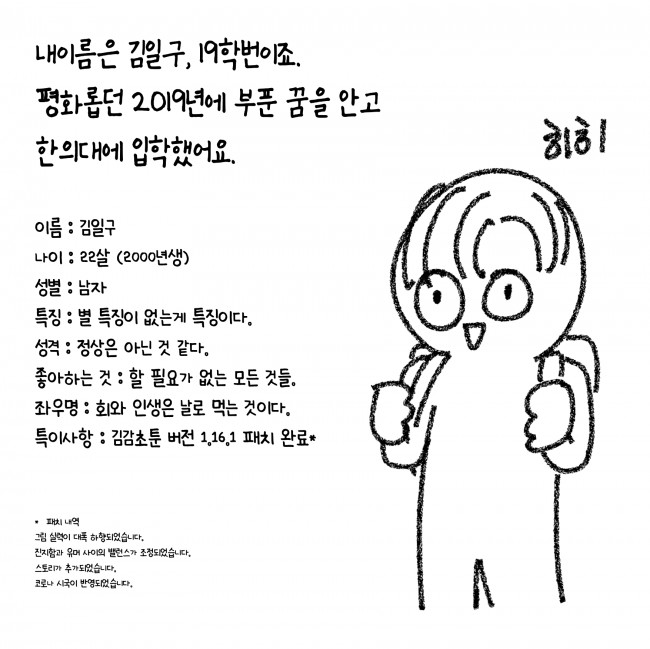 내이름은 김일구, 19학번이죠.
평화롭던 2019년에 부푼 꿈을 안고
한의대에 입학했어요.
히히
이름 : 김일구
나이 : 22살 (2000년생)
성별 : 남자
특징 : 별 특징이 없는게 특징이다.
성격 : 정상은 아닌 것 같다.
좋아하는 것 : 할 필요가 없는 모든 것들.
좌우명 : 회와 인생은 날로 먹는 것이다.
특이사항 : 김감초툰 버전 1.16.1 패치 완료*
* 패치 내역
그림 실력이 대폭 하향되었습니다.
진지함과 유머 사이의 밸런스가 조정되었습니다.
스토리가 추가되었습니다.
코로나 시국이 반영되었습니다.